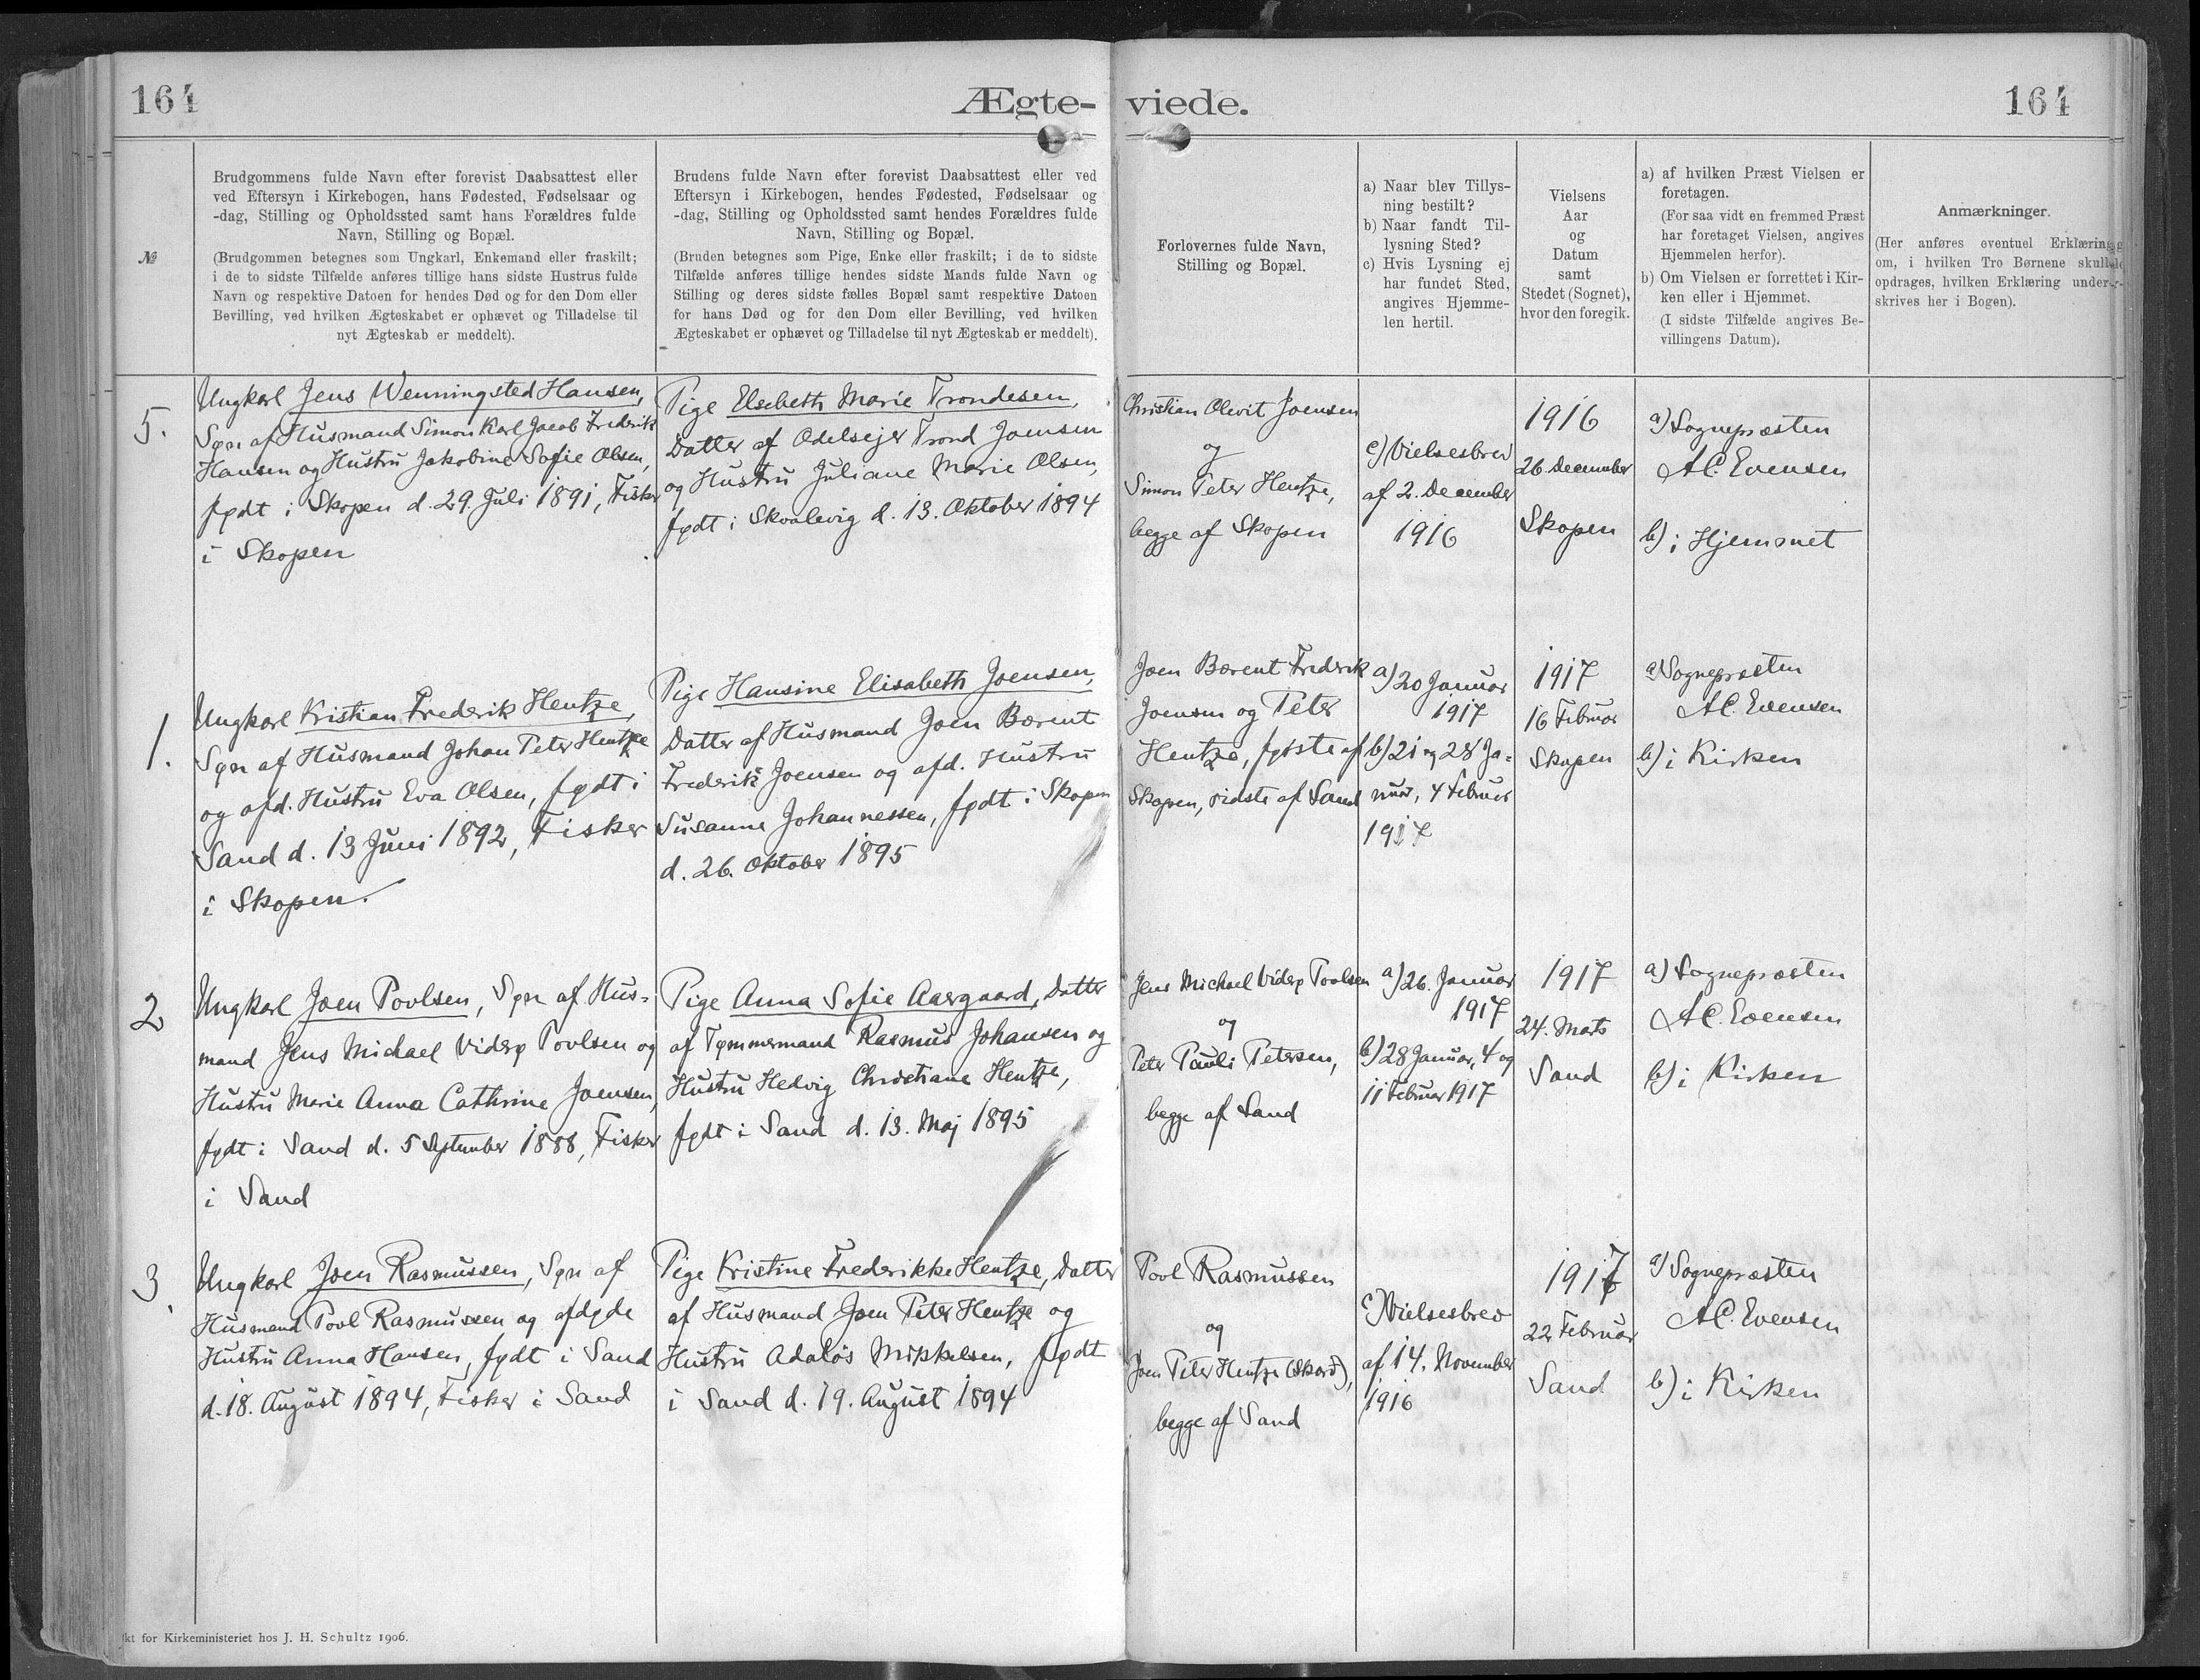 164
Ægte-
viede.
164
№
Brudgommens fulde Navn efter forevist Daabsattest eller
ved Eftersyn i Kirkebogen, hans Fødested, Fødselsaar og
-dag, Stilling og Opholdssted samt hans Forældres fulde
Navn, Stilling og Bopæl.
(Brudgommen betegnes som Ungkarl, Enkemand eller fraskilt;
i de to sidste Tilfælde anføres tillige hans sidste Hustrus fulde
Navn og respektive Datoen for hendes Død og for den Dom eller
Bevilling, ved hvilken Ægteskabet er ophævet og Tilladelse til
nyt Ægteskab er meddelt).
Brudens fulde Navn efter forevist Daabsattest eller ved
Eftersyn i Kirkebogen, hendes Fødested, Fødselsaar og
-dag, Stilling og Opholdssted samt hendes Forældres fulde
Navn, Stilling og Bopæl.
(Bruden betegnes som Pige, Enke eller fraskilt; i de to sidste
Tilfælde anføres tillige hendes sidste Mands fulde Navn og
Stilling og deres sidste fælles Bopæl samt respektive Datoen
for hans Død og for den Dom eller Bevilling, ved hvilken
Ægteskabet er ophævet og Tilladelse til nyt Ægteskab er meddelt).
Forlovernes fulde Navn,
Stilling og Bopæl.
a) Naar blev Tillys-
ning bestilt?
b) Naar fandt Til-
lysning Sted?
c) Hvis Lysning ej
har fundet Sted,
angives Hjemme-
len hertil.
Vielsens
Aar
og
Datum
samt
Stedet (Sognet),
hvor den foregik.
a) af hvilken Præst Vielsen er
foretagen.
(For saa vidt en fremmed Præst
har foretaget Vielsen, angives
Hjemmelen herfor).
b) Om Vielsen er forrettet i Kir-
ken eller i Hjemmet.
(I sidste Tilfælde angives Be-
villingens Datum).
Anmærkninger.
(Her anføres eventuel Erklæring
om, i hvilken Tro Børnene skulle
opdrages, hvilken Erklæring under-
skrives her i Bogen).
5.
Ungkarl Jens Wenningsted Hansen,
Søn af Husmand Simon Karl Jacob Frederik
Hansen og Hustru Jakobine Sofie Olsen,
født i Skopen d. 29. Juli 1891, Fisker
i Skopen
Pige Elsebeth Marie Trondesen,
Datter af Odelsejer Trond Joensen
og Hustru Juliane Marie Olsen,
født i Skvalevig d. 13. Oktober 1894
Christian Olevit Joensen
og
Simon Peter Hentze,
begge af Skopen
c) Vielsesbrev
af 2. December
1916
1916
26. December
Skopen
a) Sognepræsten
A.C. Evensen
b) i Hjemmet
1.
Ungkarl Kristian Frederik Hentze,
Søn af Husmand Johan Peter Hentze
og afd. Hustru Eva Olsen, født i
Sand d. 13 Juni 1892, Fisker
i Skopen.
Pige Hansine Elisabeth Joensen,
Datter af Husmand Joen Bærent
Frederik Joensen og afd. Hustru
Susanne Johannessen, født i Skopen
d. 26. Oktober 1895
Joen Bærent Frederik
Joensen og Peter
Hentze, første af
Skopen, sidste af Sand
a) 20 Januar
1917
b) 21 og 28 Ja-
nuar, 4 Februar
1917
1917
16 Februar
Skopen
a) Sognepræsten
A.C. Evensen
b) i Kirken
2
Ungkarl Joen Povlsen, Søn af Hus-
mand Jens Michael Viderø Povlsen og
Hustru Marie Anna Cathrine Joensen,
født i Sand d. 5 September 1888, Fisker
i Sand
Pige Anna Sofie Aargaard, Datter
af Tømmermand Rasmus Johansen og
Hustru Hedvig Christiane Hentze,
født i Sand d. 13. Maj 1895
Jens Michael Viderø Povlsen
og
Peter Pauli Petersen,
begge af Sand
a) 26. Januar
1917
b) 28 Januar, 4 og
11 Februar 1917
1917
24. Marts
Sand
a) Sognepræsten
A.C. Evensen
b) i Kirken
3.
Ungkarl Joen Rasmussen, Søn af
Husmand Povl Rasmussen og afdøde
Hustru Anna Hansen, født i Sand
d. 18. August 1894, Fisker i Sand
Pige Kristine Frederikke Hentze, Datter
af Husmand Joen Peter Hentze og
Hustru Adaløs Mikkelsen, født
i Sand d. 19. August 1894
Povl Rasmussen
og
Joen Peter Hentze (Skarð),
begge af Sand
c) Vielsesbrev
af 14. November
1916
1917
22 Februar
Sand
a) Sognepræsten
A.C. Evensen
b) i Kirken
kt for Kirkeministeriet hos J. H. Schultz 1906.